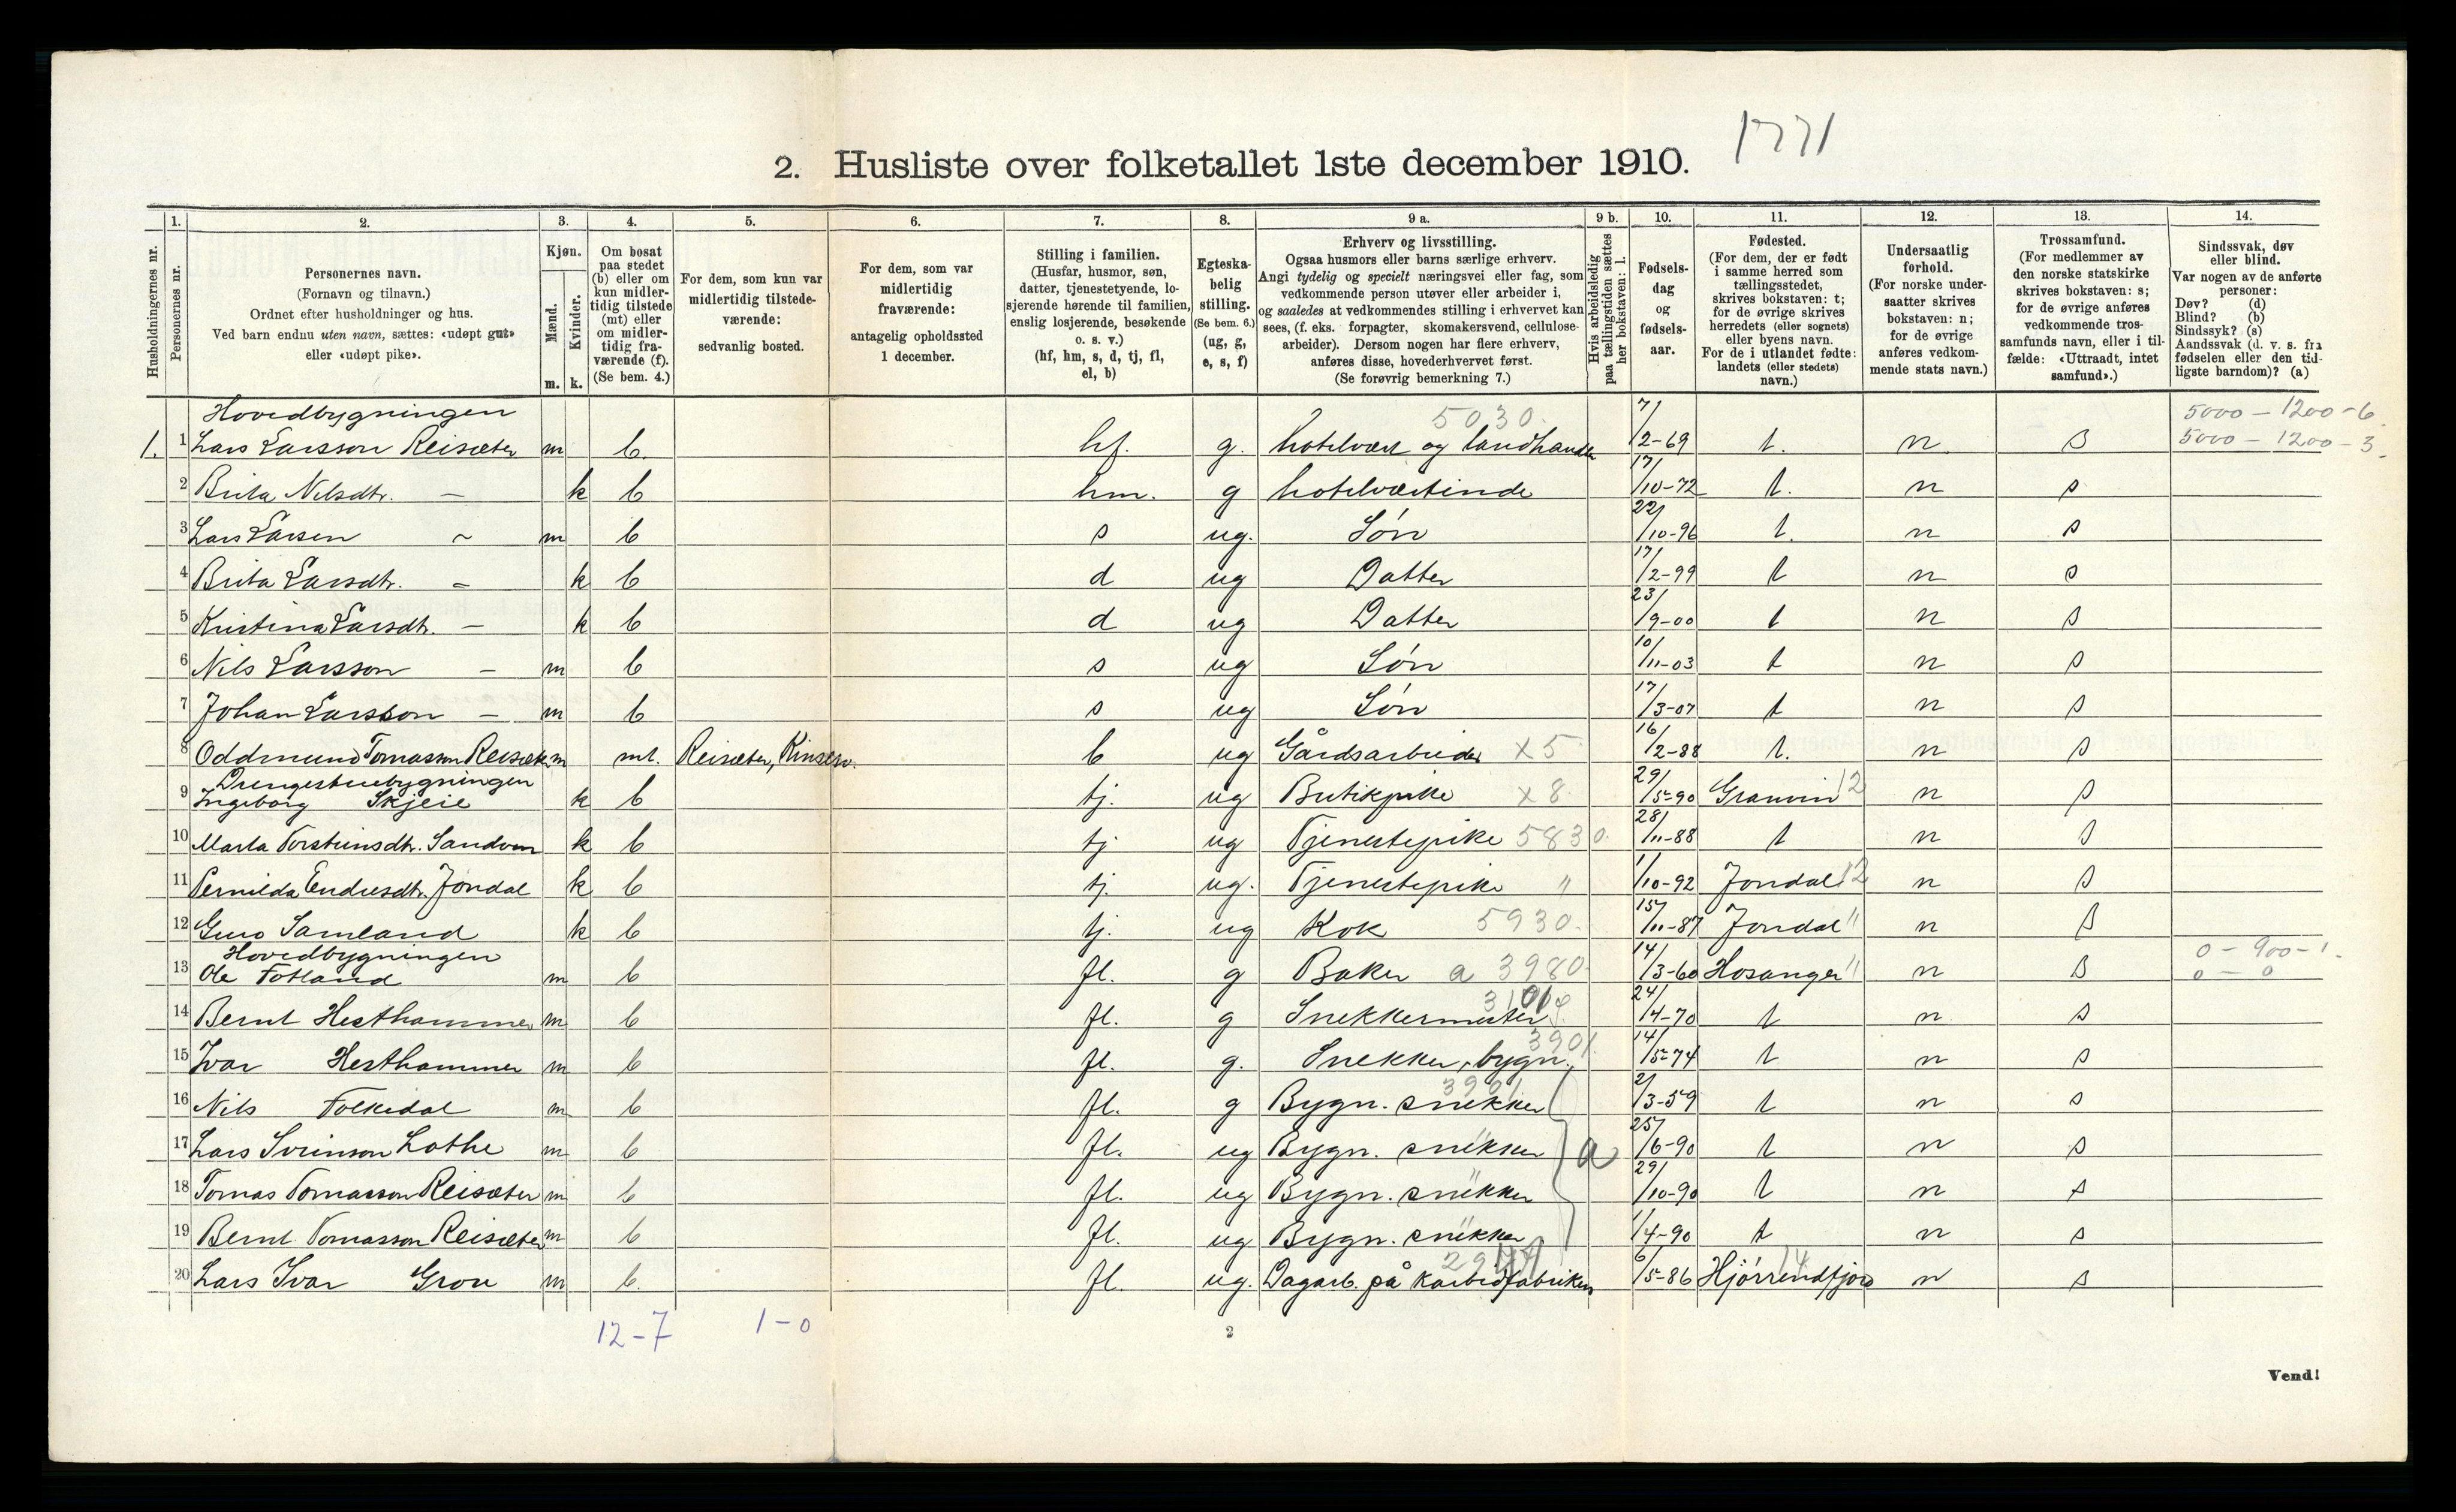 1771
2. Husliste over folketallet 1ste december 1910.
Husholdningernes nr.
1. Personernes nr.
2. Personernes navn.
(Fornavn og tilnavn.)
Ordnet efter husholdninger og hus.
Ved barn endnu uten navn, sættes: «udøpt gut»
eller «udøpt pike».
3. Kjøn.
Mænd. m.
Kvinder. k.
4. Om bosat
paa stedet
(b) eller om
kun midler-
tidig tilstede
(mt) eller
om midler-
tidig fra-
værende (f).
(Se bem. 4.)
5. For dem, som kun var
midlertidig tilstede-
værende:
sedvanlig bosted.
6. For dem, som var
midlertidig
fraværende:
antagelig opholdssted
1 december.
7. Stilling i familien.
(Husfar, husmor, søn,
datter, tjenestetyende, lo-
sjerende hørende til familien,
enslig losjerende, besøkende
o. s. v.)
(hf, hm, s, d, tj, fl,
el, b)
8. Egteska-
belig
stilling.
(Se bem. 6.)
(ug, g,
e, s, f)
9 a. Erhverv og livsstilling.
Ogsaa husmors eller barns særlige erhverv.
Angi tydelig og specielt næringsvei eller fag, som
vedkommende person utøver eller arbeider i,
og saaledes at vedkommendes stilling i erhvervet kan
sees, (f. eks. forpagter, skomakersvend, cellulose-
arbeider). Dersom nogen har flere erhverv,
anføres disse, hovederhvervet først.
(Se forøvrig bemerkning 7.)
9 b. Hvis arbeidsledig
paa tællingstiden sættes
her bokstaven: l.
10. Fødsels-
dag
og
fødsels-
aar.
11. Fødested.
(For dem, der er født
i samme herred som
tællingsstedet,
skrives bokstaven: t;
for de øvrige skrives
herredets (eller sognets)
eller byens navn.
For de i utlandet fødte:
landets (eller stedets)
navn.)
12. Undersaatlig
forhold.
(For norske under-
saatter skrives
bokstaven: n;
for de øvrige
anføres vedkom-
mende stats navn.)
13. Trossamfund.
(For medlemmer av
den norske statskirke
skrives bokstaven: s;
for de øvrige anføres
vedkommende tros-
samfunds navn, eller i til-
fælde: «Uttraadt, intet
samfund».)
14. Sindssvak, døv
eller blind.
Var nogen av de anførte
personer:
Døv? (d)
Blind? (b)
Sindssyk? (s)
Aandssvak (d. v. s. fra
fødselen eller den tid-
ligste barndom)? (a)
Hovedbygningen 5030. 5000 - 1200 - 6
1. 1 Lars Larsson Reisæter m b. hf. g. hotelvært og landhandler 7/2-69 t. n. s 5000 - 1200 - 3
2 Brita Nilsdtr. — k b hm. g hotelværtinde 17/10-72 t. n s
3 Lars Larsen ~ m b s ug. Søn 22/10-96 t. n s
4 Brita Larsdtr. = k b d ug Datter 17/2-99 t n s
5 Kristina Larsdtr. — k b d ug Datter 23/9-00 t n s
6 Nils Larsson — m b s ug Søn 10/11-03 t n s
7 Johan Larsson — m b s ug Søn 17/3-07 t n s
8 Oddmund Tomasson Reisæter m mt. Reisæter, Kinserv. b ug Gårdsarbeider x5 16/2-88 t. n s
Drengestuebygningen
9 Ingeborg Skjeie k b tj. ug Butikpike x8 29/5-90 Granvin 12 n s
10 Marta Torsteinsdtr. Sandven k b tj ug Tjenestepike 5830. 28/11-88 t n s
11 Pernilda Endresdtr. Jondal k b tj. ug. Tjenestepike " 1/10-92 Jondal 12 n s
12 Guro Samland k b tj. ug Kok 5930. 15/11-87 Jondal " n s
Hovedbygningen 0 - 900 - 1.
13 Ole Fotland m b fl. g Baker a 3980 14/3-60 Hosanger " n s 0 - 0
14 Bernt Hesthammer m b fl. g Snekkermester 24/4-70 t n s
15 Ivar Hesthammer m b fl. g. Snekker, bygn. 3901. 14/5-74 t n s
16 Nils Folkedal m b fl. g Bygn. snekker 3901 2/3-59 t n s
17 Lars Sveinson Lothe m b fl. ug Bygn. snekker " a 25/6-90 t n s
18 Tomas Tomasson Reisæter m b fl. ug Bygn. snekker " 29/10-90 t n s
19 Bernt Tomasson Reisæter m b fl. ug Bygn. snekker " 1/4-90 t n s
20 Lars Ivar Grov m b. fl. ug. Dagarb. på karbidfabriken 6/5-86 Hjørrendfjord 14 n s
12-7 1-0
2
Vend!